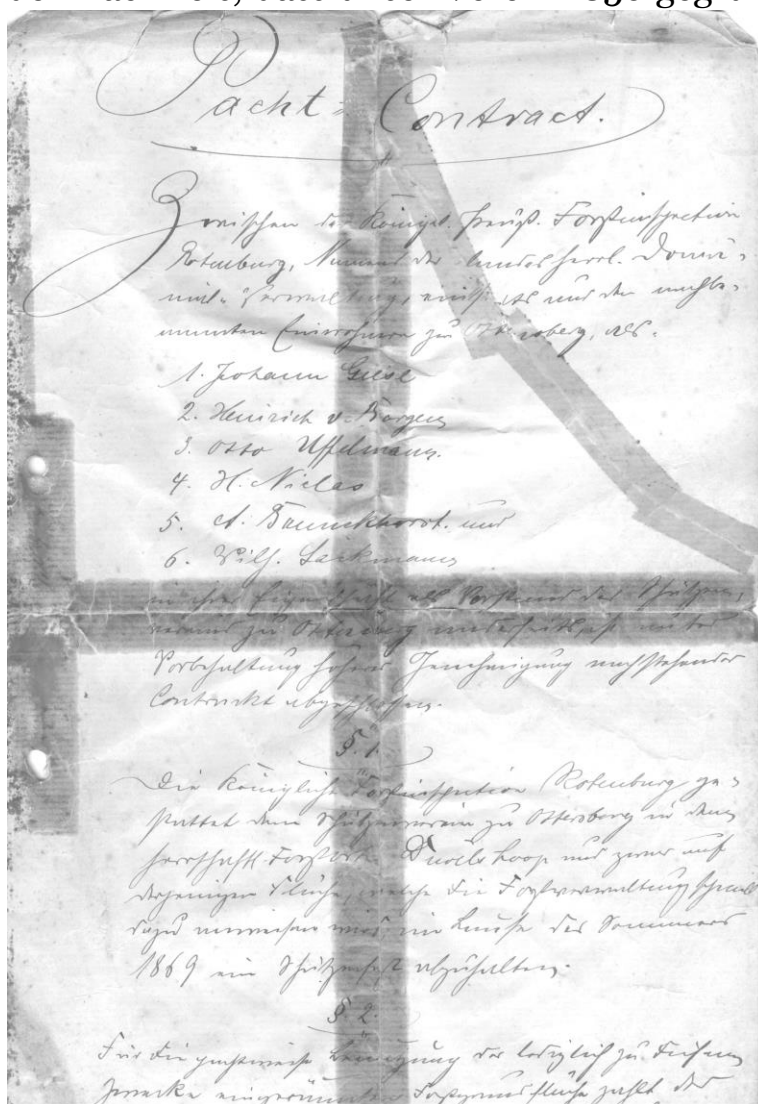 Pacht- Contract.
Zwischen der Königl. Preuß. Forstinspection
Rotenburg, Namens der landesherrl. Domai-
nial-Verwaltung, einerseits und den nachbe-
nannten Einwohnern zu Ottersberg, als:
1. Johann
2. Heinrich v. Borgen
3. Otto Uffelmann.
4. H. Niclas
5. A. und
6. Wilh. Lackmann
in ihrer Eigenschaft als Vorstand des Schützen-
vereins zu Ottersberg anderseits, ist unter
Vorbehaltung höherer Genehmigung nachstehender
Contrackt abgeschlossen.
§. 1.
Die Königliche Forstinspection Rotenburg ge-
stattet dem Schützenverein zu Ottersberg in dem
herrschaftl. Forstorte und zwar auf
derjenigen Fläche, welche die Forstverwaltung
dazu anweisen wird, im Laufe des Sommers
1869 ein Schützenfest abzuhalten.
§ 2.
Für die pachtweise der lediglich zu diesem
Zwecke eingeräumten Forstgrundfläche zahlt der